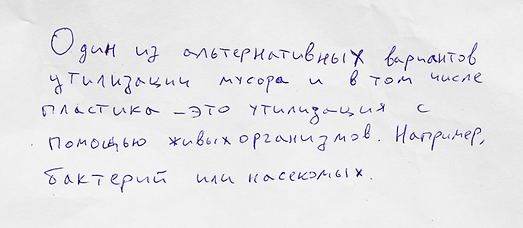 Один из альтернативных вариантов
утилизации мусора и в том числе
пластика – это утилизация с
помощью живых организмов. Например,
бактерий или насекомых.